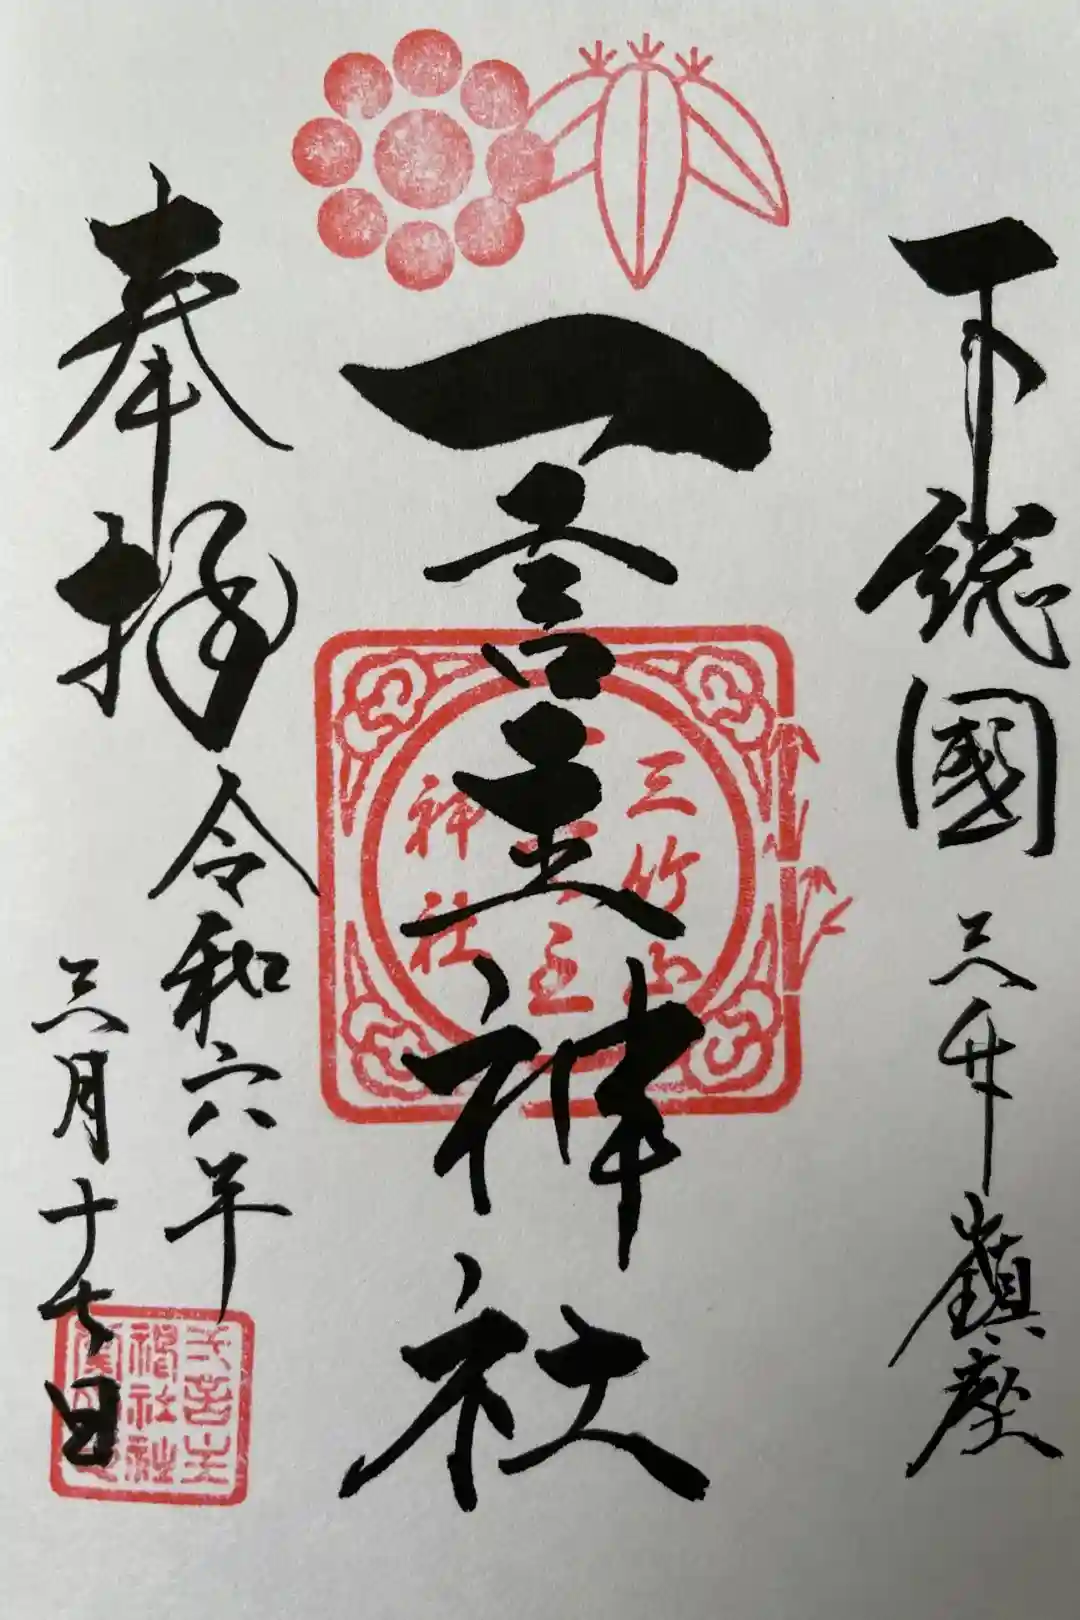 下総國 三竹山鎮座
一言主神社
奉拝
令和六年
三月十七日
三竹山
主
神社
言主
神社社